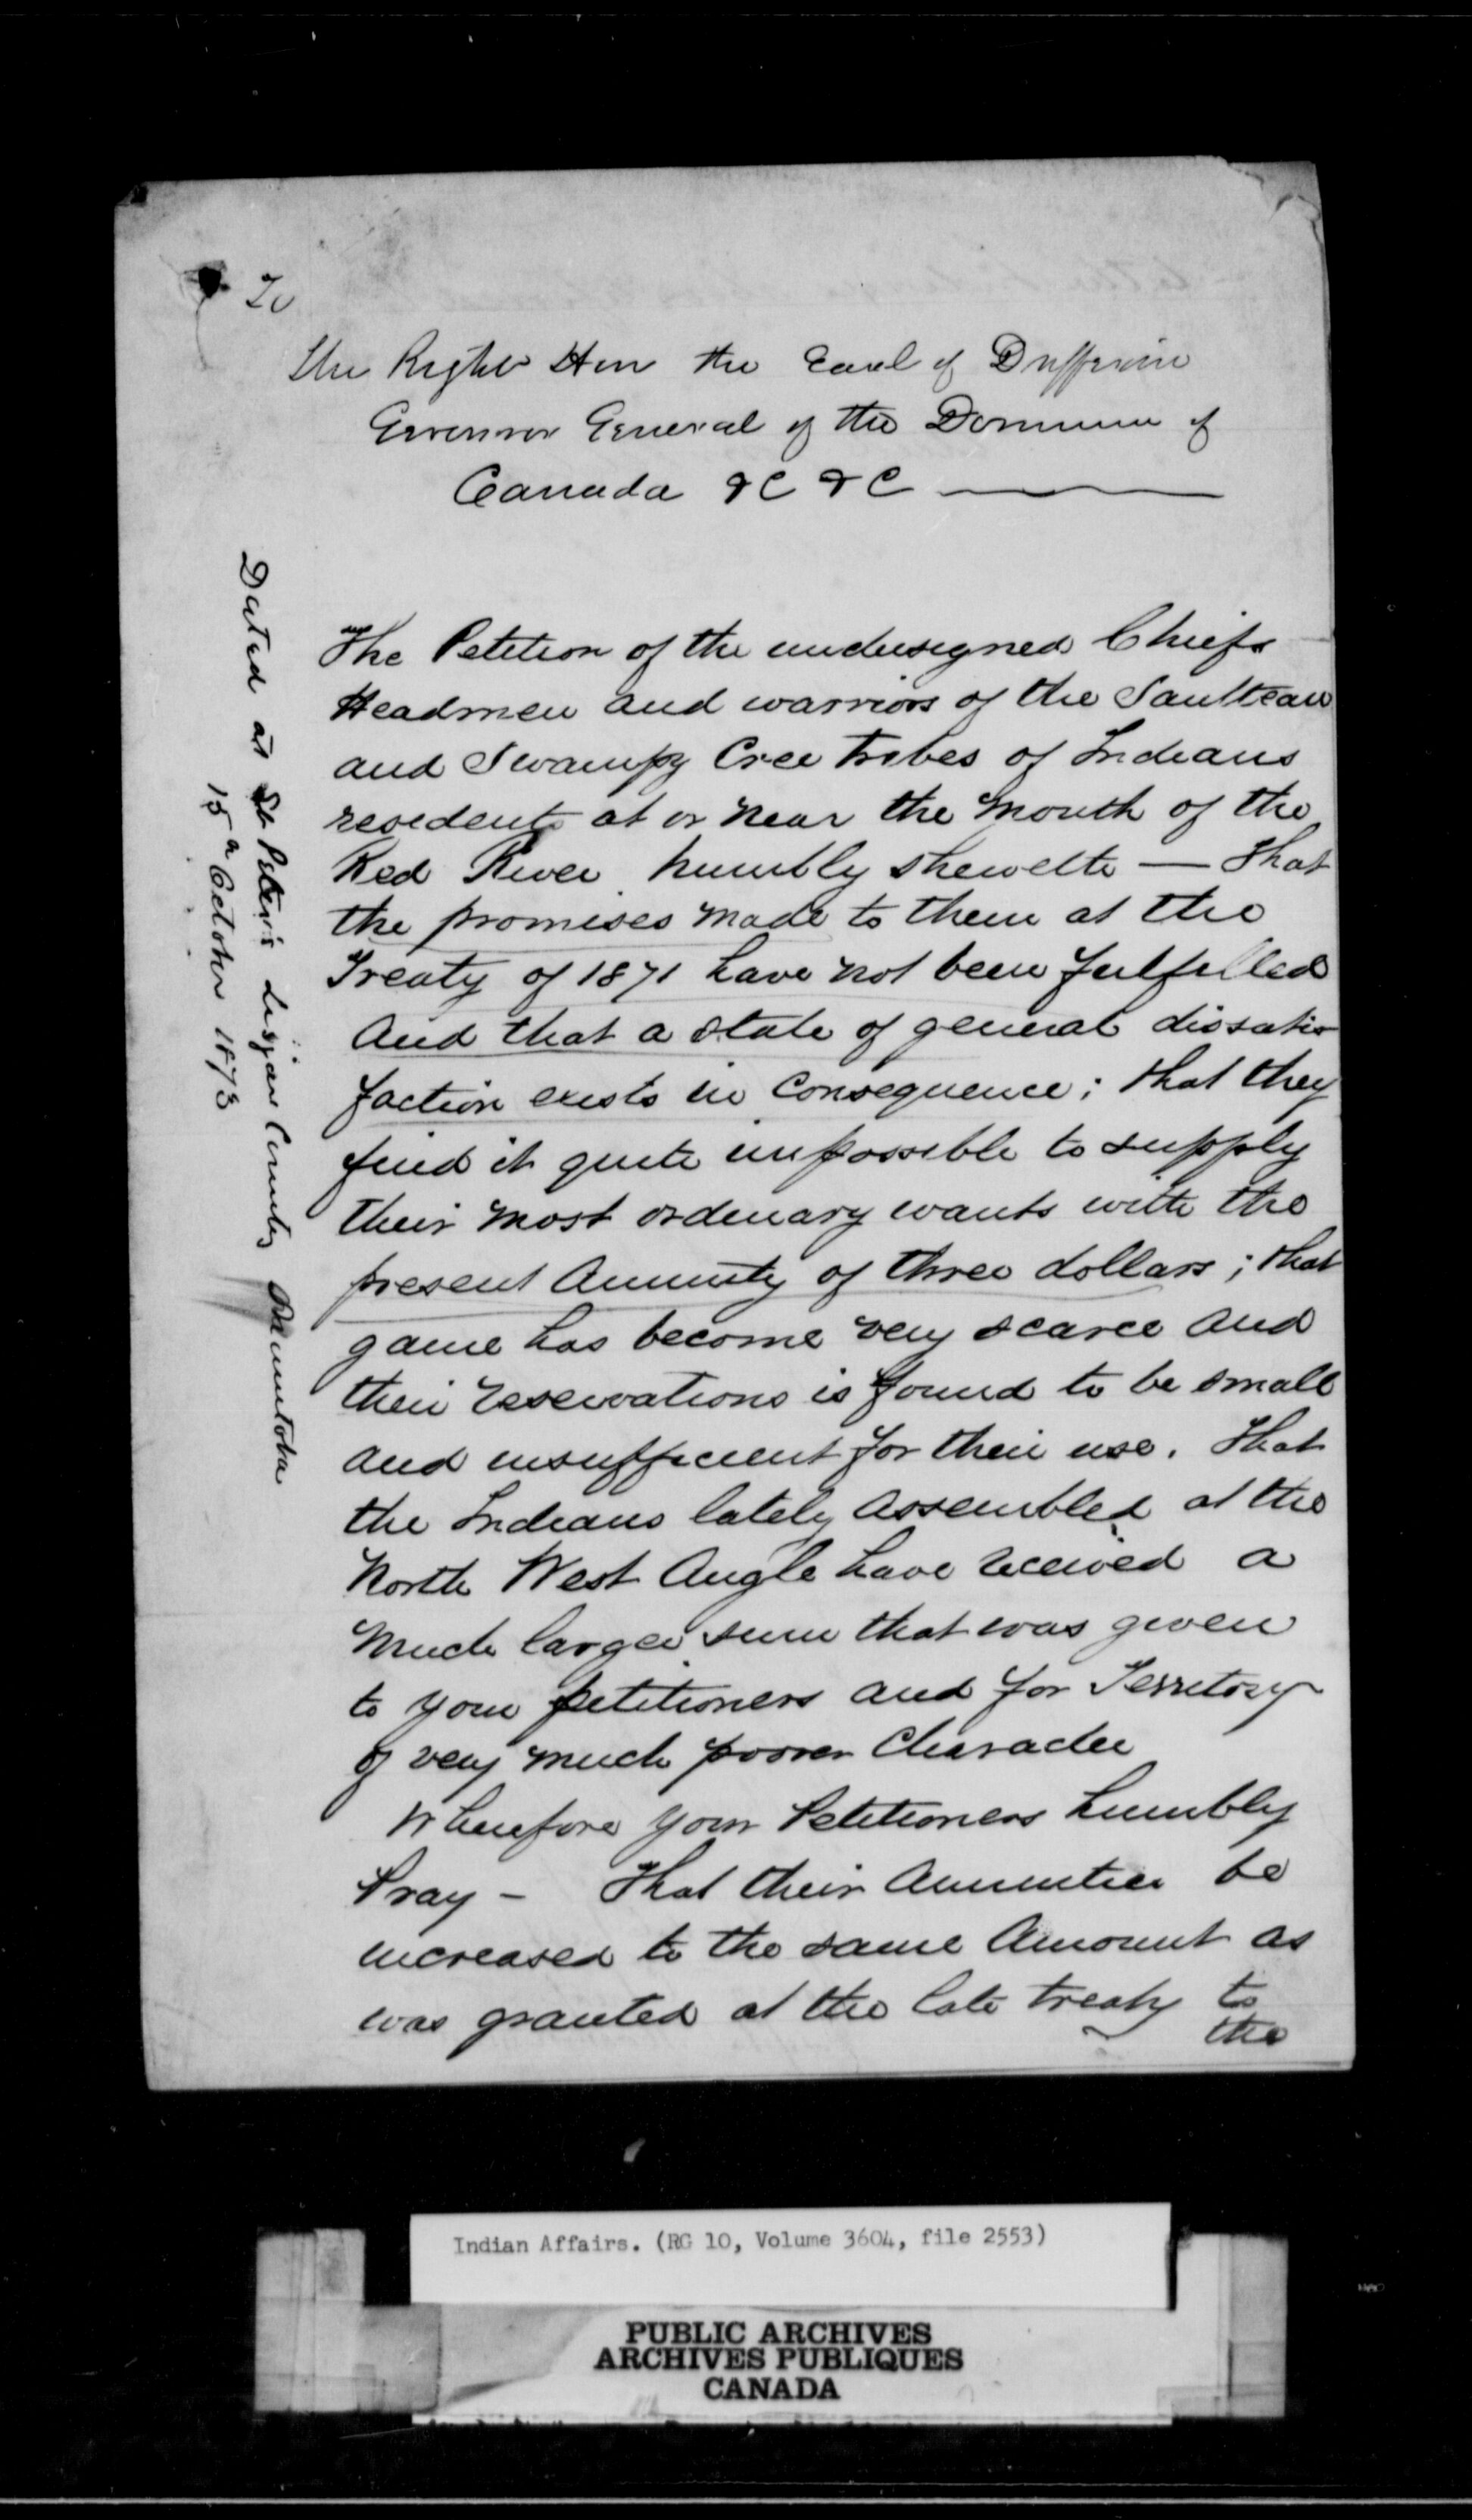 To
The Right Hon the Earl of Dufferin
Governor General of the Dominion of
Canada &C &C
The Petition of the undersigned Chiefs
Headmen and warriors of the Saulteau
and Swampy Cree Tribes of Indians
resedents at or near the Mouth of the
Red River humbly sheweth — That
the promises made to them at the
Treaty of 1871 have not been fulfilled
And that a state of general dissatis
faction exists in Consequence; that they
find it quite impossible to supply
their most ordenary wants with the
present Annuity of three dollars; that
game has become very scarce and
their reservations is found to be small
and insufficient for their use. That
the Indians lately assembled at the
North West Angle have received a
Much larger sum that was given
to your petitioners and for Territory
of very much poorer Character
Wherefore your Petitioners humbly
Pray - That their Annuities be
increased to the same Amount as
was granted at the late treaty to
the
Dated at St Peter's Lisgar County Manitoba
15th October 1873
Indian Affairs. (RG 10, Volume 3604, file 2553)
PUBLIC ARCHIVES
ARCHIVES PUBLIQUES
CANADA